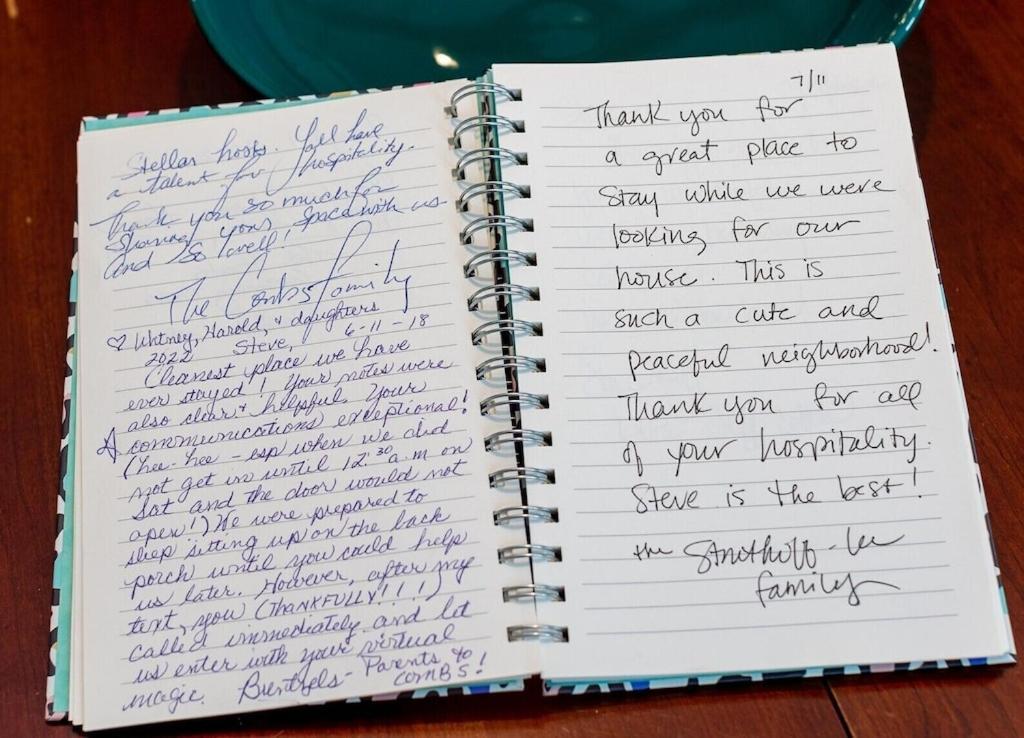 Stellar hosts. Yall have
a talent for hospitality.
Thank you so much for
Sharing your space with us
and so lovely!
The Combs Family
♡ Whitney, Harold, + daughters
2022 Steve, 6-11-18
Cleanest place we have
ever stayed! Your notes were
also clear + helpful. Your
communications exceptional!
(hee-hee - esp when we did
not get in until 12:30 a.m on
Sat and the door would not
open!) We were prepared to
sleep sitting up on the back
porch until you could help
us later. However, after my
text, you (THANKFULLY!!!!)
called immediately and let
us enter with your virtual
magic. Parents to
COMBS!
7/11
Thank you for
a great place to
stay while we were
looking for our
house. This is
such a cute and
peaceful neighborhood!
Thank you for all
of your hospitality.
Steve is the best!
the
family